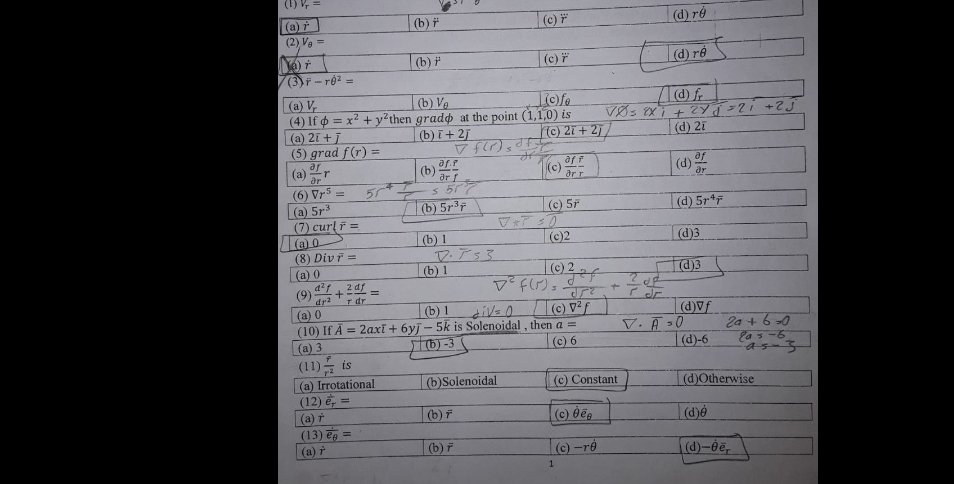 (1) V_r =
(a) ṙ (b) r̈ (c) r⃛ (d) rθ̇
(2) V_θ =
(a) ṙ (b) r̈ (c) r⃛ (d) rθ̇
(3) r̈ − rθ̇² =
(a) V_r (b) V_θ (c) f_θ (d) f_r
(4) If ϕ = x² + y²then gradϕ at the point (1,1,0) is ∇Ø = 2x i + 2y j = 2i + 2j
(a) 2ī + j̄ (b) ī + 2j̄ (c) 2ī + 2j̄ (d) 2ī
(5) grad f(r) = ∇ f(r) =
(a) ∂f/∂r r (b) ∂f/∂r r̄/f (c) ∂f/∂r r̄/r (d) ∂f/∂r
(6) ∇r⁵ = 5r⁴ r̄/r = 5r³r̄
(a) 5r³ (b) 5r³r̄ (c) 5r̄ (d) 5r⁴r̄
(7) curl r̄ = ∇×r̄ = 0
(a) 0 (b) 1 (c)2 (d)3
(8) Div r̄ = ∇·r̄ = 3
(a) 0 (b) 1 (c) 2 (d)3
(9) d²f/dr² + 2/r df/dr = ∇² f(r) = d²f/dr² + 2/r df/dr
(a) 0 (b) 1 (c) ∇²f (d)∇f
div = 0
(10) If Ā = 2axī + 6yj̄ − 5k̄ is Solenoidal , then a = ∇·Ā = 0 2a + 6 = 0
(a) 3 (b) -3 (c) 6 (d)-6 2a = -6
a = -3
(11) r̄/r² is
(a) Irrotational (b)Solenoidal (c) Constant (d)Otherwise
(12) ē̇_r =
(a) ṙ (b) r̄ (c) θ̇ē_θ (d)θ̇
(13) ē̇_θ =
(a) ṙ (b) r̄ (c) −rθ̇ (d)−θ̇ē_r
1